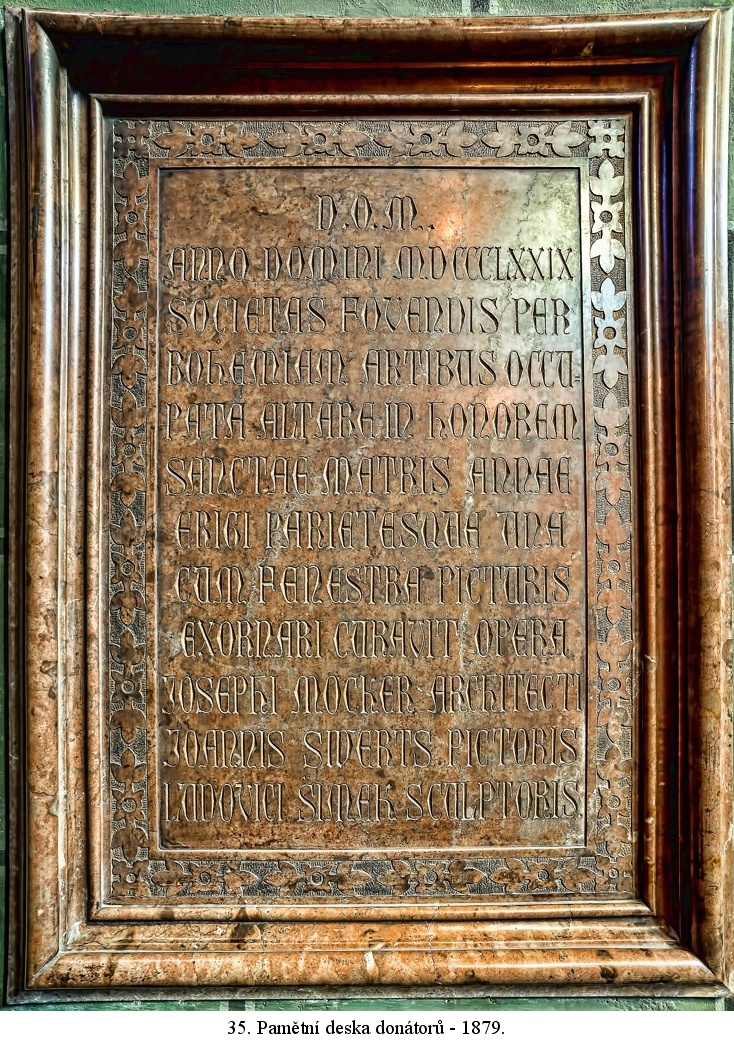 D.O.M.
ANNO DOMINI MDCCCLXXIX
SOCIETAS FOVENDIS PER
BOHEMIAM ARTIBUS OCCU-
PATA ALTARE IN HONOREM
SANCTAE MATRIS ANNAE
ERIGI PARIETESQUE UNA
CUM FENESTRA PICTURIS
EXORNARI CURAVIT OPERA
JOSEPHI MOCKER ARCHITECTI
JOANNIS SWERTS PICTORIS
LUDOVICI ŠIMEK SCULPTORIS
35. Pamětní deska donátorů - 1879.